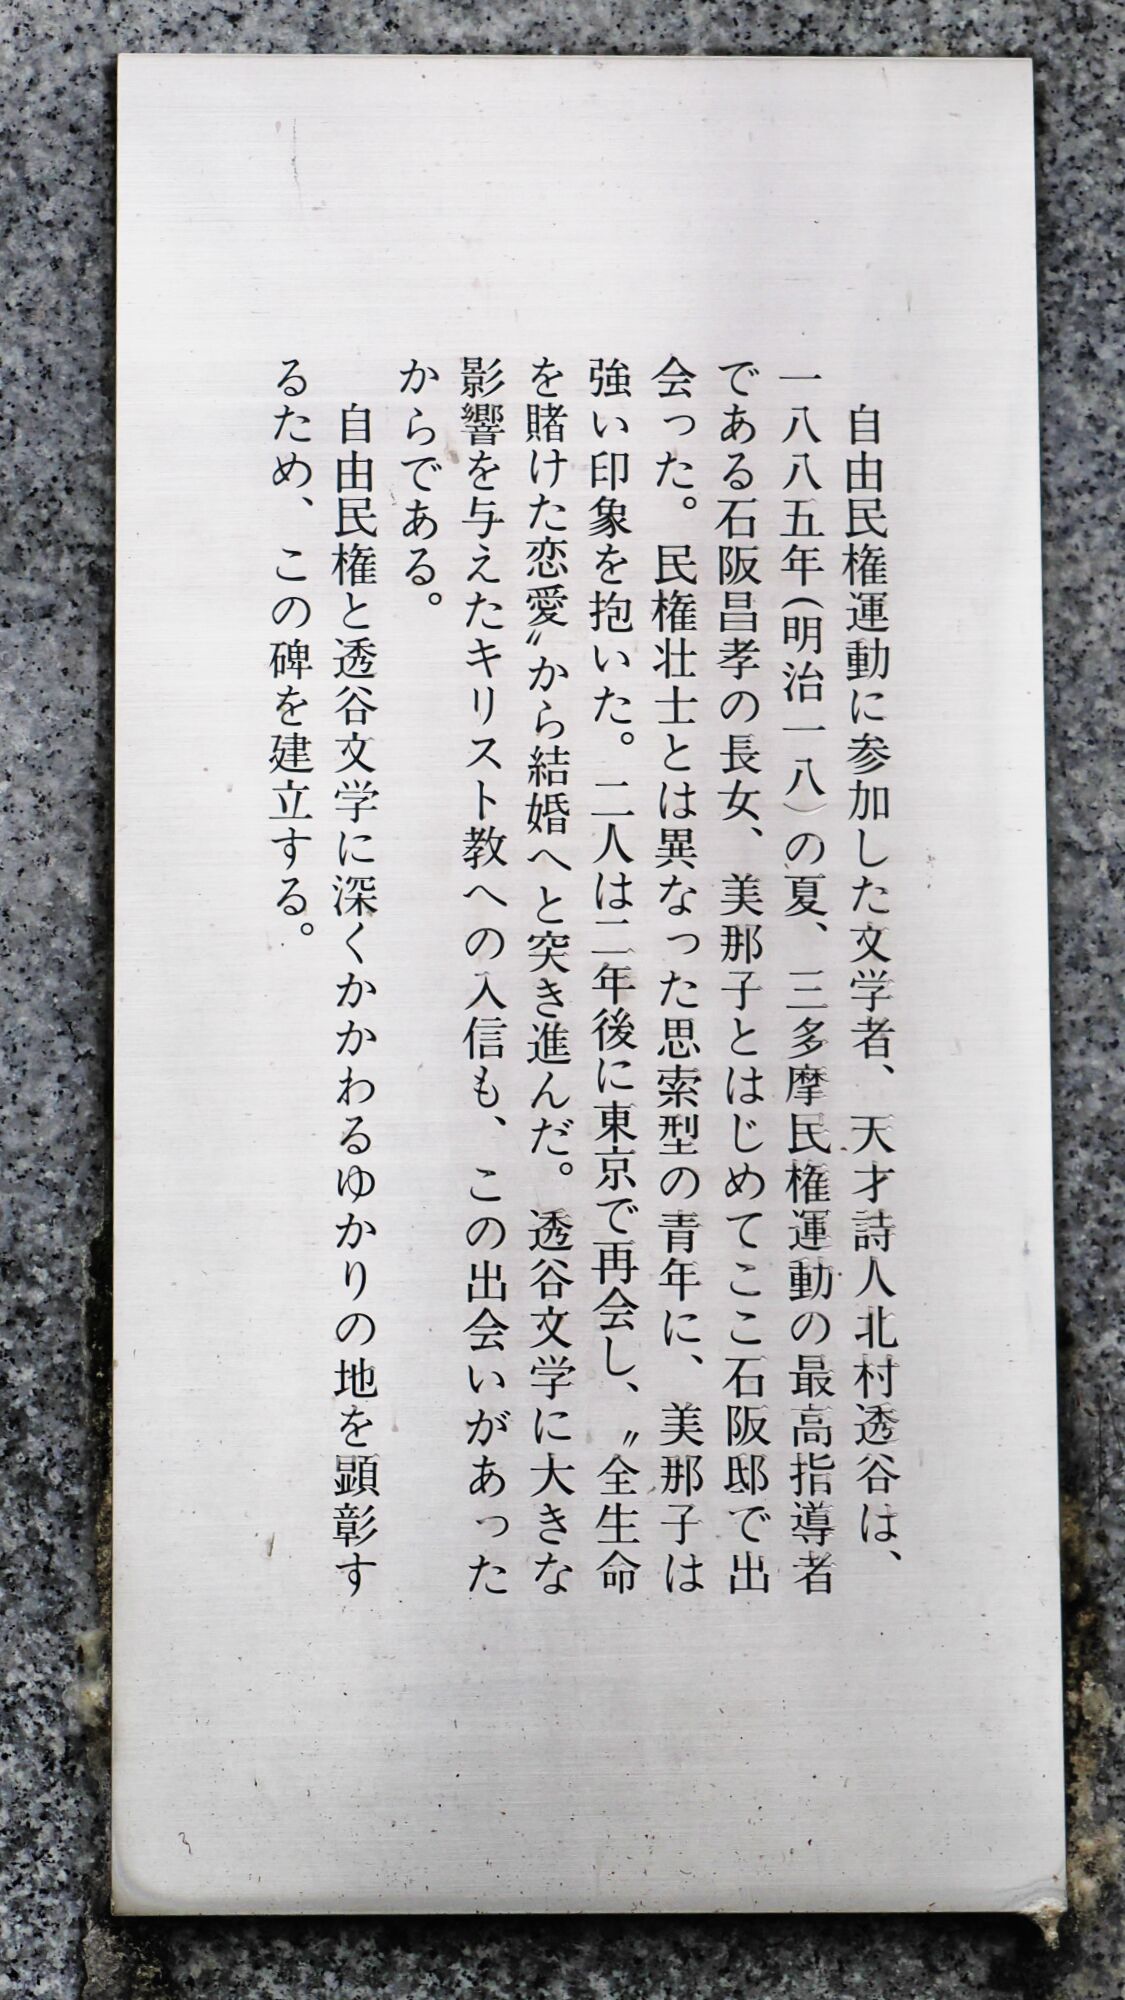 自由民権運動に参加した文学者、天才詩人北村透谷は、
一八八五年(明治一八)の夏、三多摩民権運動の最高指導者
である石阪昌孝の長女、美那子とはじめてここ石阪邸で出
会った。民権壮士とは異なった思索型の青年に、美那子は
強い印象を抱いた。二人は二年後に東京で再会し、〝全生命
を賭けた恋愛〞から結婚へと突き進んだ。透谷文学に大きな
影響を与えたキリスト教への入信も、この出会いがあった
からである。
　自由民権と透谷文学に深くかかわるゆかりの地を顕彰す
るため、この碑を建立する。